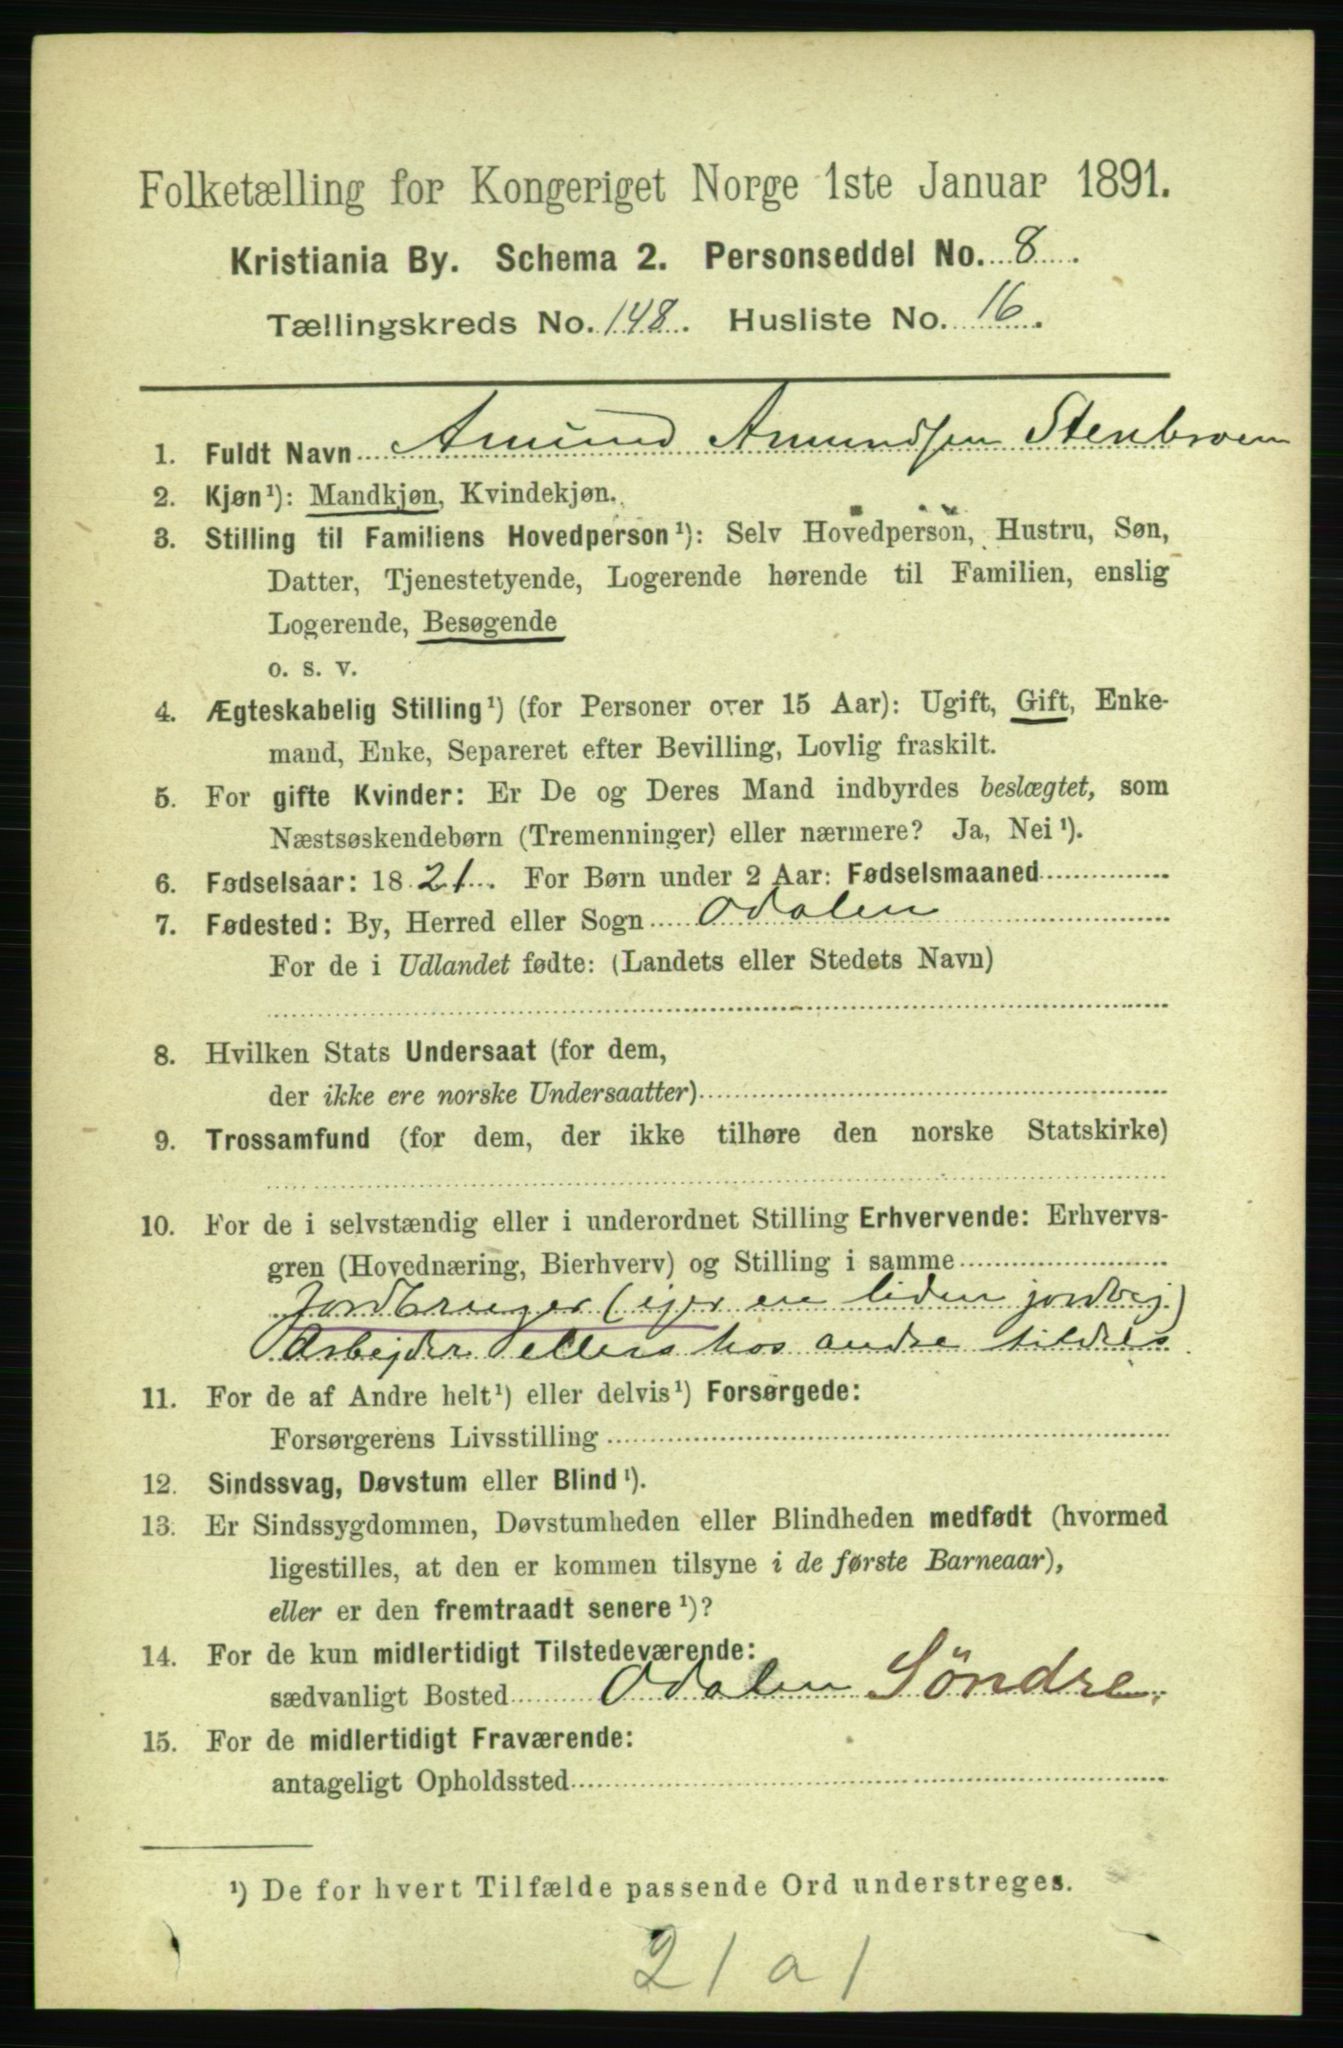 Folketælling for Kongeriget Norge 1ste Januar 1891.
Kristiania By. Schema 2. Personseddel No. 8.
Tællingskreds No. 148. Husliste No. 16.
1. Fuldt Navn Amund Amundsen Stenbroen
2. Kjøn¹): Mandkjøn, Kvindekjøn.
3. Stilling til Familiens Hovedperson¹): Selv Hovedperson, Hustru, Søn,
Datter, Tjenestetyende, Logerende hørende til Familien, enslig
Logerende, Besøgende
o. s. v.
4. Ægteskabelig Stilling¹) (for Personer over 15 Aar): Ugift, Gift, Enke-
mand, Enke, Separeret efter Bevilling, Lovlig fraskilt.
5. For gifte Kvinder: Er De og Deres Mand indbyrdes beslægtet, som
Næstsøskendebørn (Tremenninger) eller nærmere? Ja, Nei¹).
6. Fødselsaar: 1821. For Børn under 2 Aar: Fødselsmaaned
7. Fødested: By, Herred eller Sogn Odalen
For de i Udlandet fødte: (Landets eller Stedets Navn)
8. Hvilken Stats Undersaat (for dem,
der ikke ere norske Undersaatter)
9. Trossamfund (for dem, der ikke tilhøre den norske Statskirke)
10. For de i selvstændig eller i underordnet Stilling Erhvervende: Erhvervs-
gren (Hovednæring, Bierhverv) og Stilling i samme
Jordbruger (ejer en liden jordvej)
Arbejder ellers hos andre tildels
11. For de af Andre helt¹) eller delvis¹) Forsørgede:
Forsørgerens Livsstilling
12. Sindssvag, Døvstum eller Blind¹).
13. Er Sindssygdommen, Døvstumheden eller Blindheden medfødt (hvormed
ligestilles, at den er kommen tilsyne i de første Barneaar),
eller er den fremtraadt senere¹)?
14. For de kun midlertidigt Tilstedeværende:
sædvanligt Bosted Odalen Söndre.
15. For de midlertidigt Fraværende:
antageligt Opholdssted
¹) De for hvert Tilfælde passende Ord understreges.
2/a/